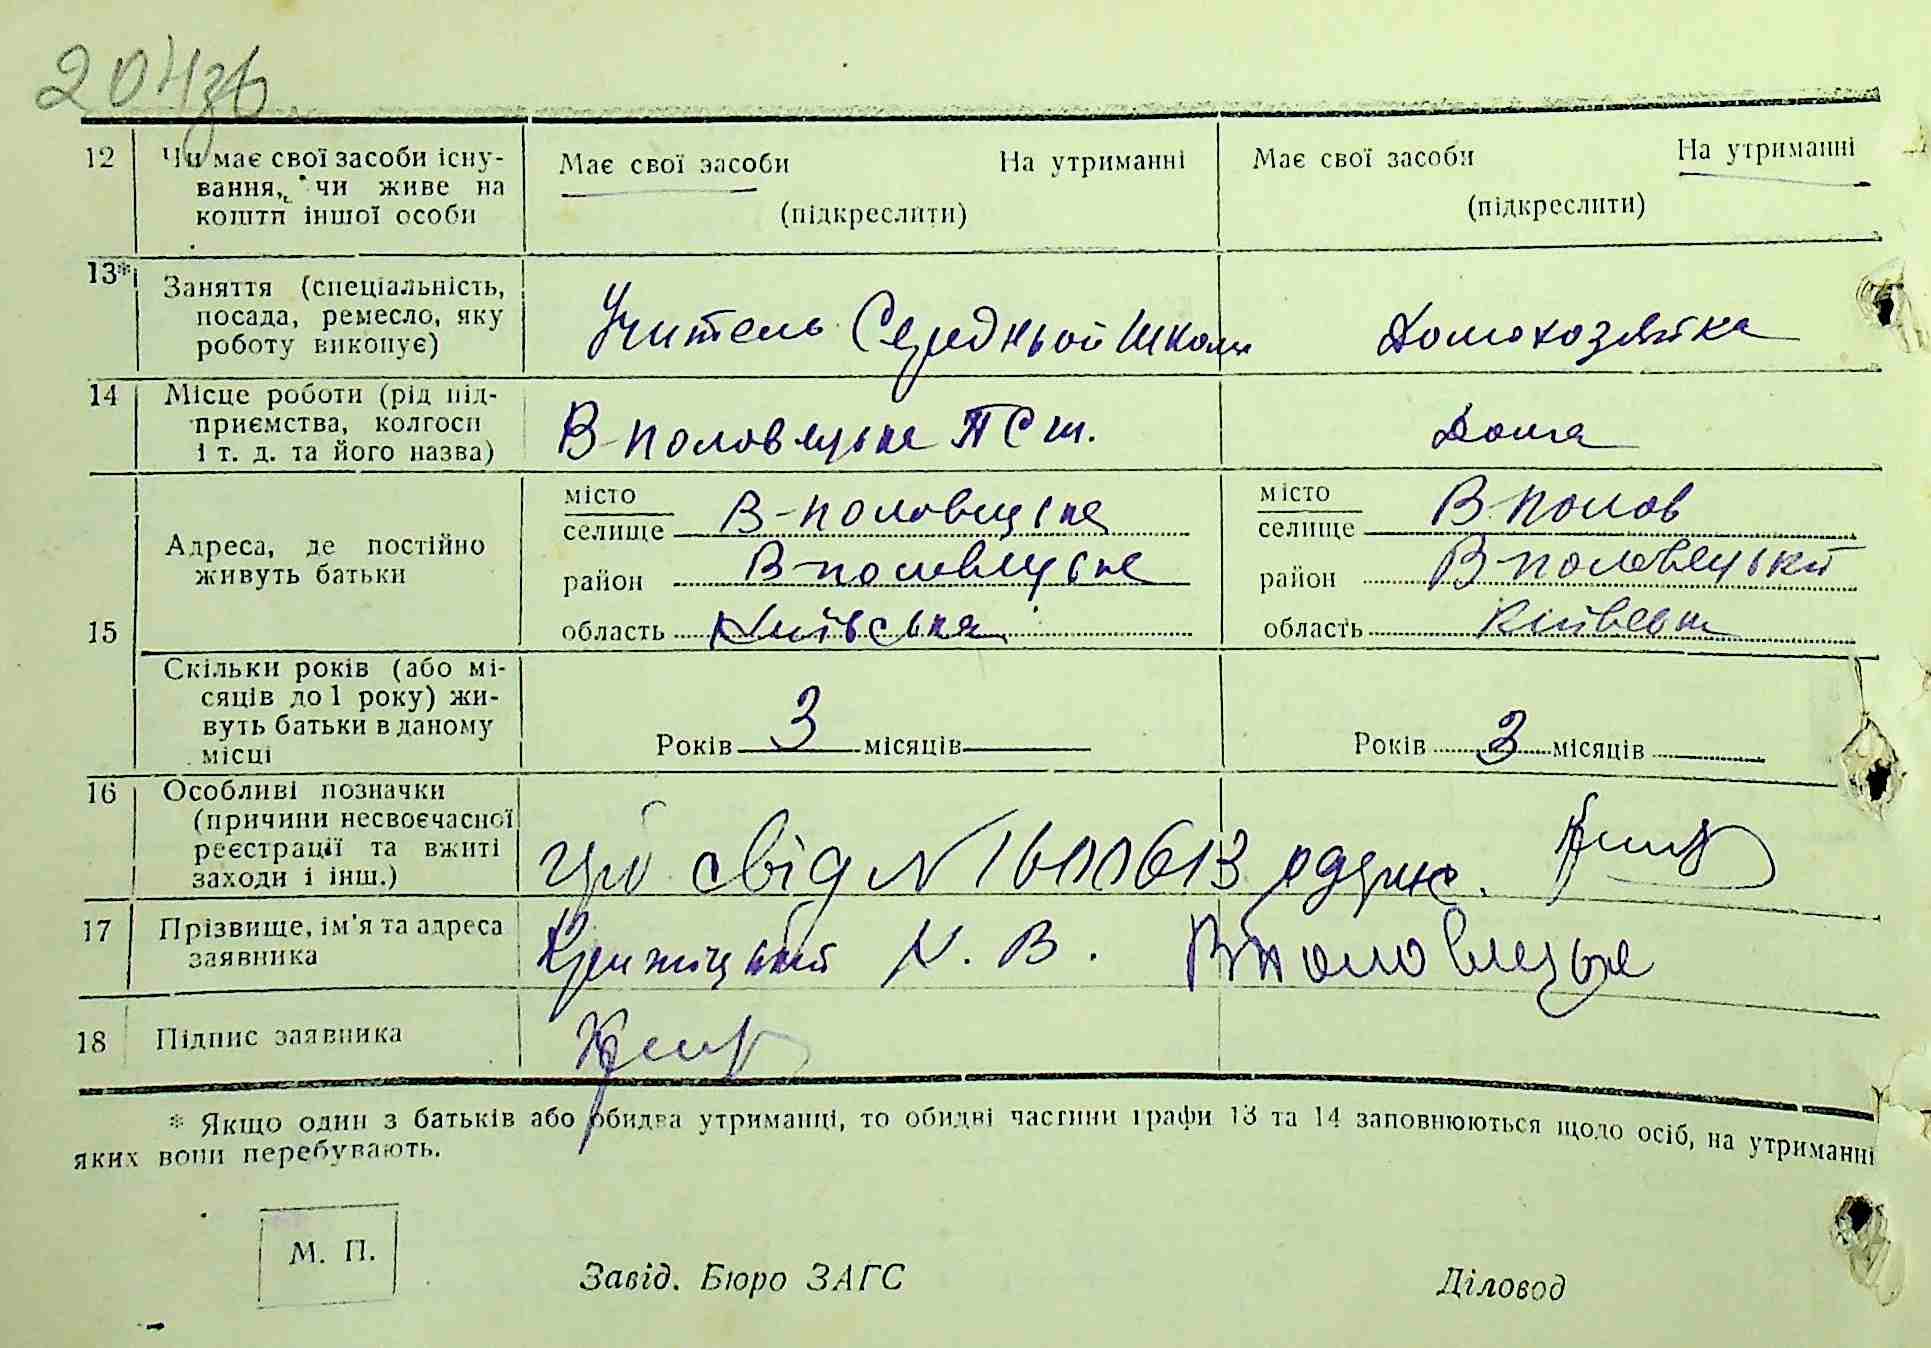 204зв
12 Чи має свої засоби існу- Має свої засоби На утриманні Має свої засоби На утриманні
вання, чи живе на (підкреслити) (підкреслити)
кошти іншої особи
13* Заняття (спеціальність,
посада, ремесло, яку Учитель Середньой школи Домохозяйка
роботу виконує)
14 Місце роботи (рід під-
приємства, колгосп В-половецьке Дома
і т. д. та його назва)
місто В-половецьке місто В полов
селище селище
Адреса, де постійно
живуть батьки район В-половецьке район В-половецький
15 область Київська область Київськ
Скільки років (або мі-
сяців до 1 року) жи-
вуть батьки в даному Років 3 місяців Років 3 місяців
місці
16 Особливі позначки
(причини несвоєчасної
реєстрації та вжиті свід N 1600613 одерж.
заходи і інш.)
17 Прізвище, ім'я та адреса В половецьке
заявника
18 Підпис заявника
* Якщо один з батьків або обидва утриманці, то обидві частини графи 13 та 14 заповнюються щодо осіб, на утриманні
яких вони перебувають.
М. П.
Завід. Бюро ЗАГС Діловод